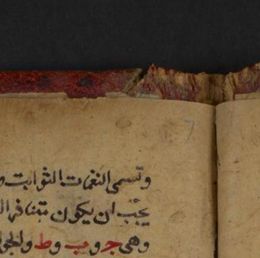 7
وتسمى النغمات الثوابت و
يجب ان يكون متنافرا
وهى ج و ب و ط و